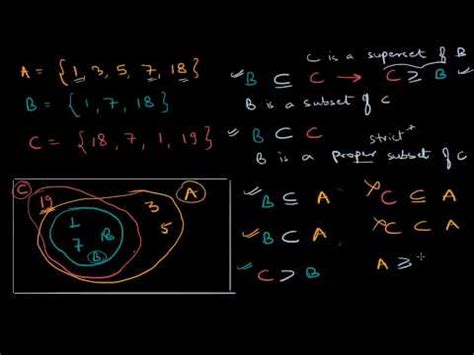 A = {1, 3, 5, 7, 18}
B = {1, 7, 18}
C = {18, 7, 1, 19}
C is a superset of B
B ⊆ C → C ≥ B
B is a subset of C
B ⊂ C
strict
B is a proper subset of C
B ⊆ A
C ⊆ A
B ⊂ A
C ⊂ A
C > B
A ≥
C
A
19
3
5
1
7
18
B